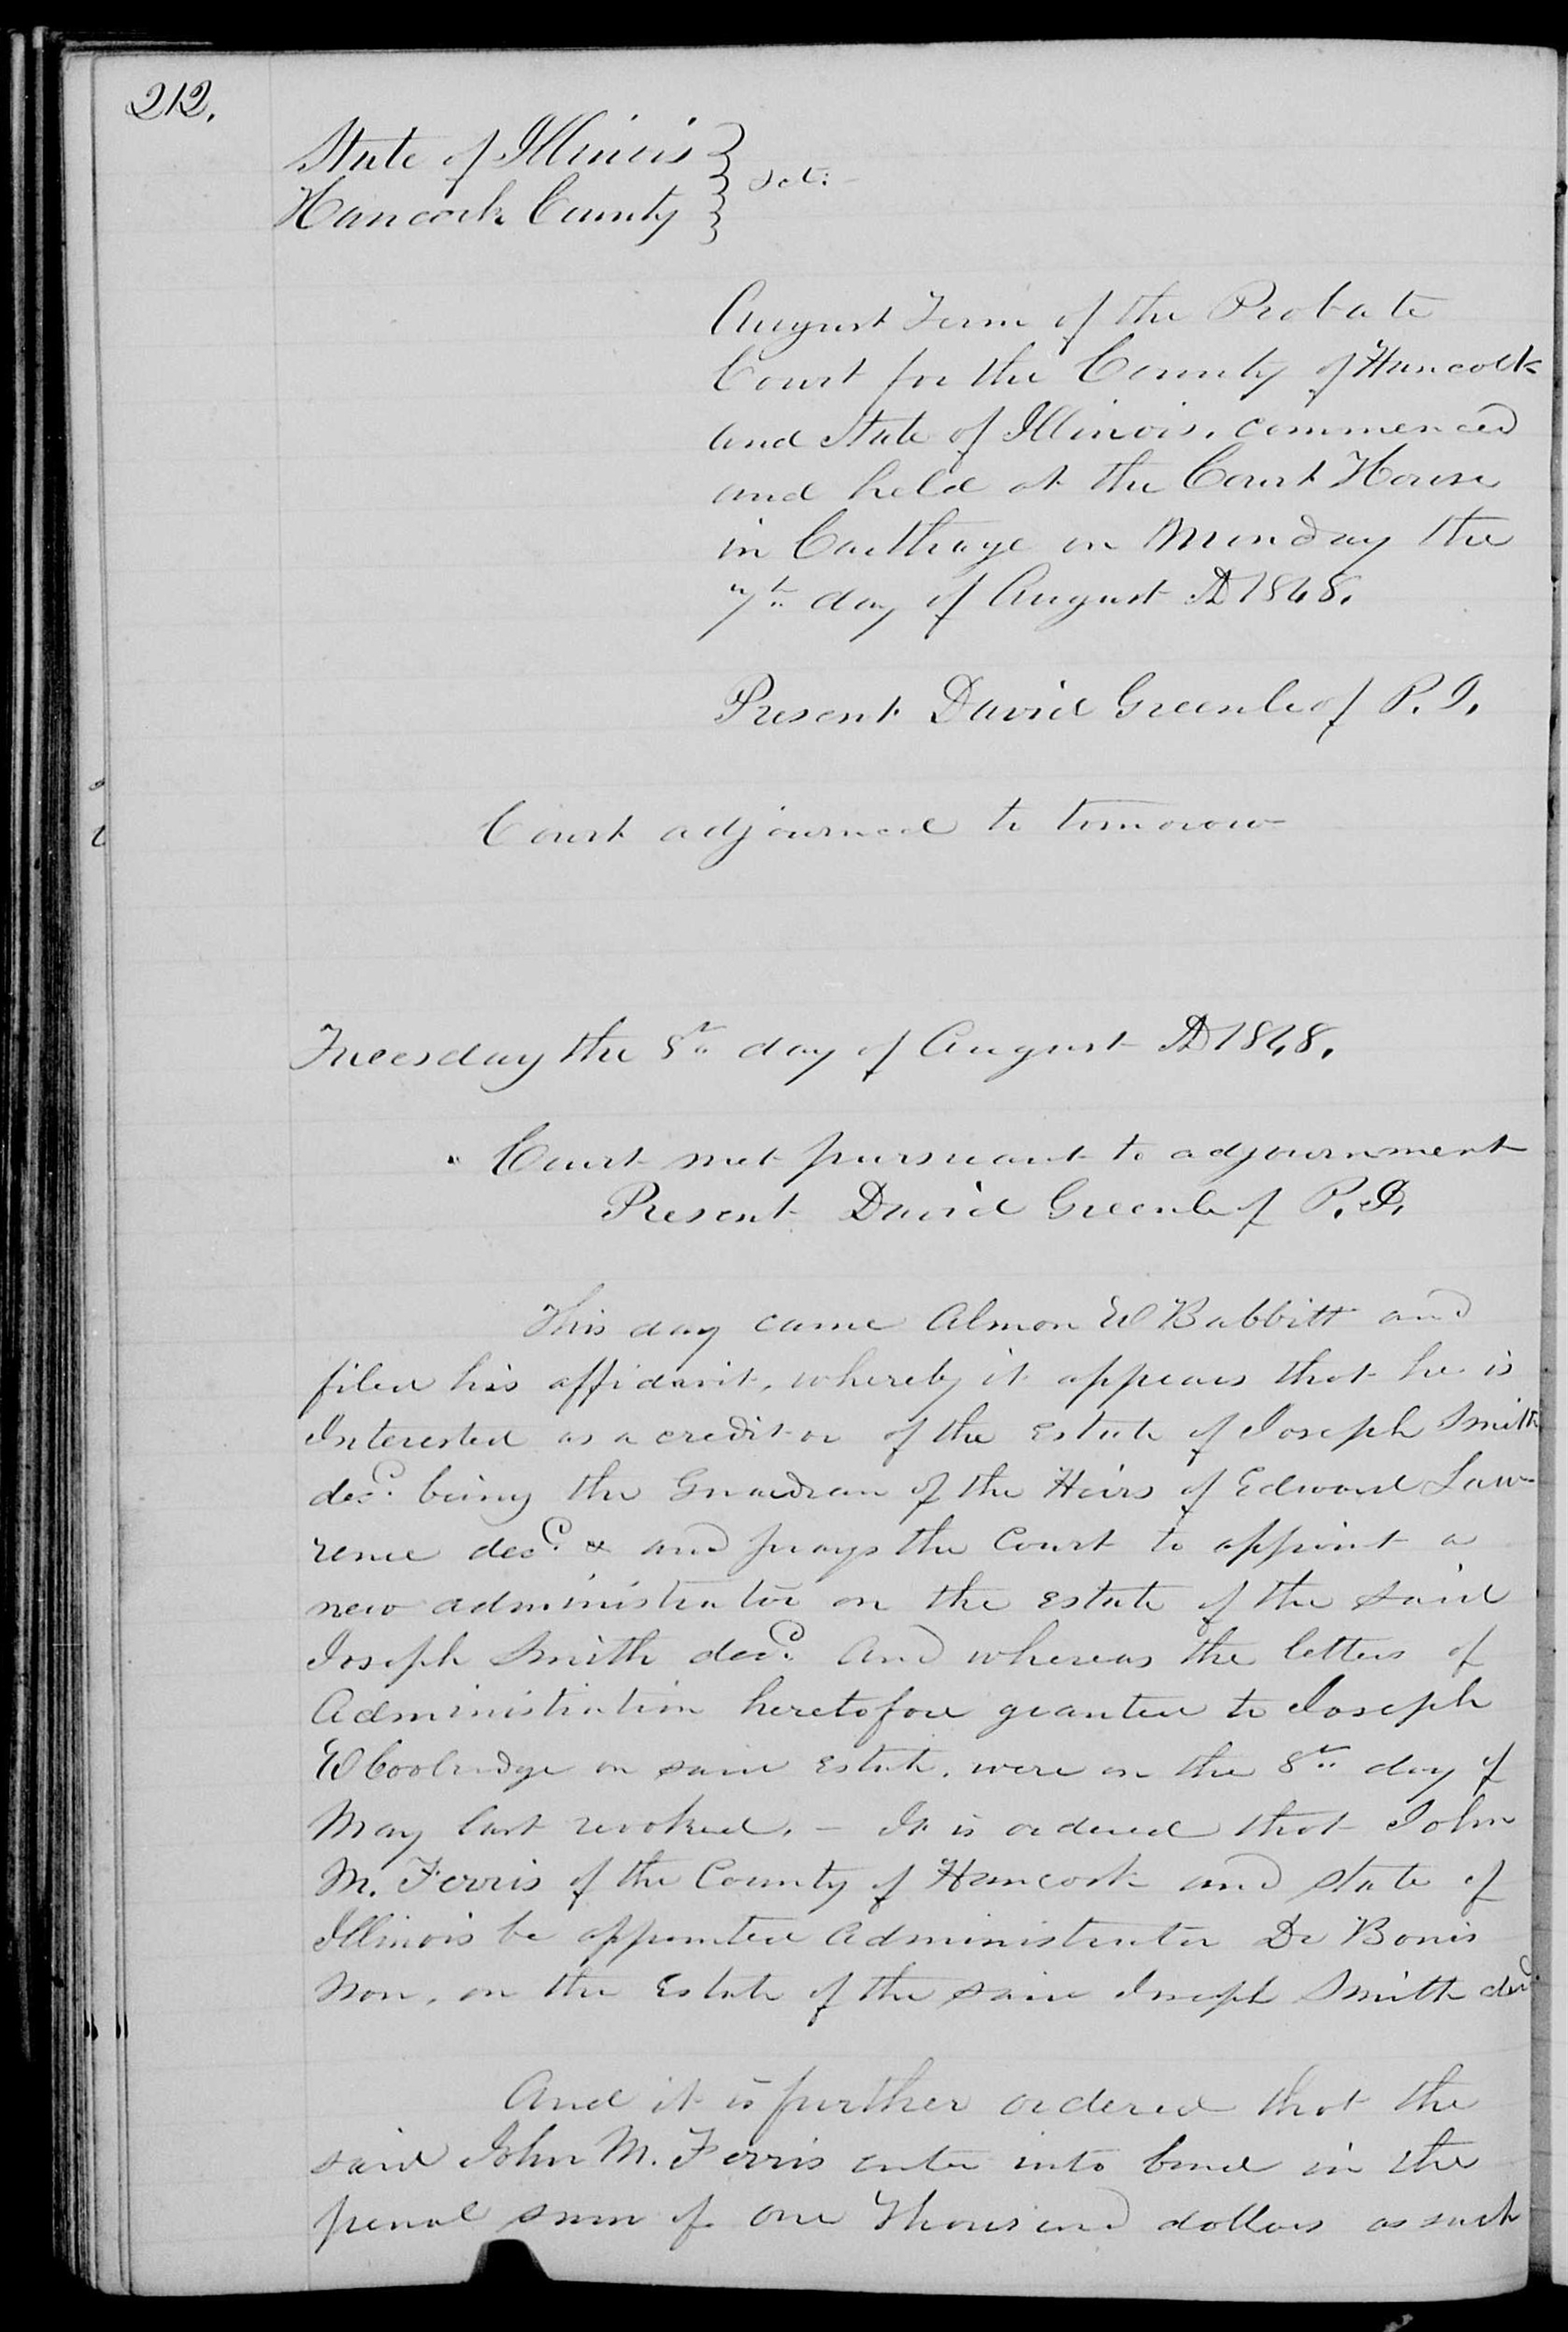 212.
State of Illinois } Sct:
Hancock County }
August Term of the Probate
Court for the County of Hancock
and State of Illinois. commenced
and held at the Court House
in Carthage on Monday the
7th day of August AD 1848.
Present David Greenleaf P. J.
Court adjourned to tomorow
Tuesday the 8th day of August AD 1848.
Court met pursuant to adjournment
Present David Greenleaf P. J.
This day came Almon W Babbitt and
filed his affidavit, whereby it appears that he is
Interested as a creditor of the Estate of Joseph Smith
decd. being the Guardian of the Heirs of Edward Law-
rence decd. & and prays the Court to appoint a
new administrator on the Estate of the said
Joseph Smith decd. And whereas the letters of
Administration heretofore granted to Joseph
W Coolridge on said Estate. were on the 8th day of
May last revoked. - It is ordered that John
M. Ferris of the County of Hancock and State of
Illinois be appointed Administrator De Bonis
Non. on the Estate of the said Joseph Smith decd
And it is further ordered that the
said John M. Ferris enter into bond in the
penal sum of One Thousand dollars as such